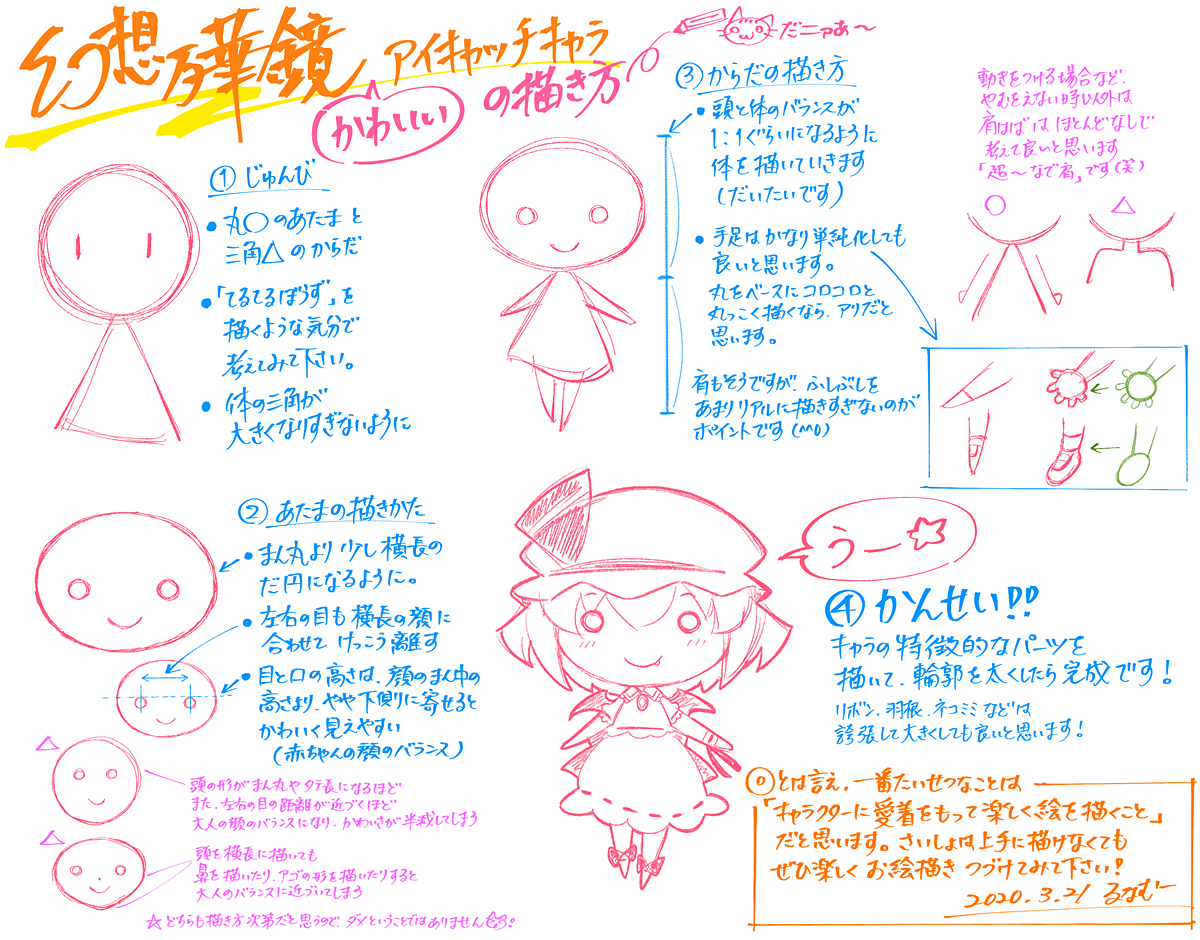 幻想万華鏡 アイキャッチキャラ
かわいい の描き方
だニァあ〜
① じゅんび
• 丸○のあたまと
三角△のからだ
• 「てるてるぼうず」を
描くような気分で
考えてみて下さい。
• 体の三角が
大きくなりすぎないように
② あたまの描きかた
• まん丸より少し横長の
だ円になるように。
• 左右の目も横長の顔に
合わせて けっこう離す
• 目と口の高さは、顔のまん中の
高さより、やや下側に寄せると
かわいく見えやすい
(赤ちゃんの顔のバランス)
△
頭の形がまん丸やタテ長になるほど
また、左右の目の距離が近づくほど
大人の顔のバランスになり、かわいさが半減してしまう
△
頭を横長に描いても
鼻を描いたり、アゴの形を描いたりすると
大人のバランスに近づいてしまう
☆どちらも描き方次第だと思うので、ダメということではありません
③ からだの描き方
• 頭と体のバランスが
1:1ぐらいになるように
体を描いていきます
(だいたいです)
• 手足はかなり単純化しても
良いと思います。
丸をベースにコロコロと
丸っこく描くなら、アリだと
思います。
肩もそうですが、ふしぶしを
あまりリアルに描きすぎないのが
ポイントです(^^0)
動きをつける場合など、
やむをえない時以外は
肩はばは ほとんどなしで
考えて良いと思います
「超〜なで肩」です(笑)
○ △
うー☆
④ かんせい!!
キャラの特徴的なパーツを
描いて、輪郭を太くしたら完成です!
リボン、羽根、ネコミミなどは
誇張して大きくしても良いと思います!
◎とは言え、一番たいせつなことは
「キャラクターに愛着をもって楽しく絵を描くこと」
だと思います。さいしょは上手に描けなくても
ぜひ楽しくお絵描きつづけてみて下さい!
2020.3.21 るなむー